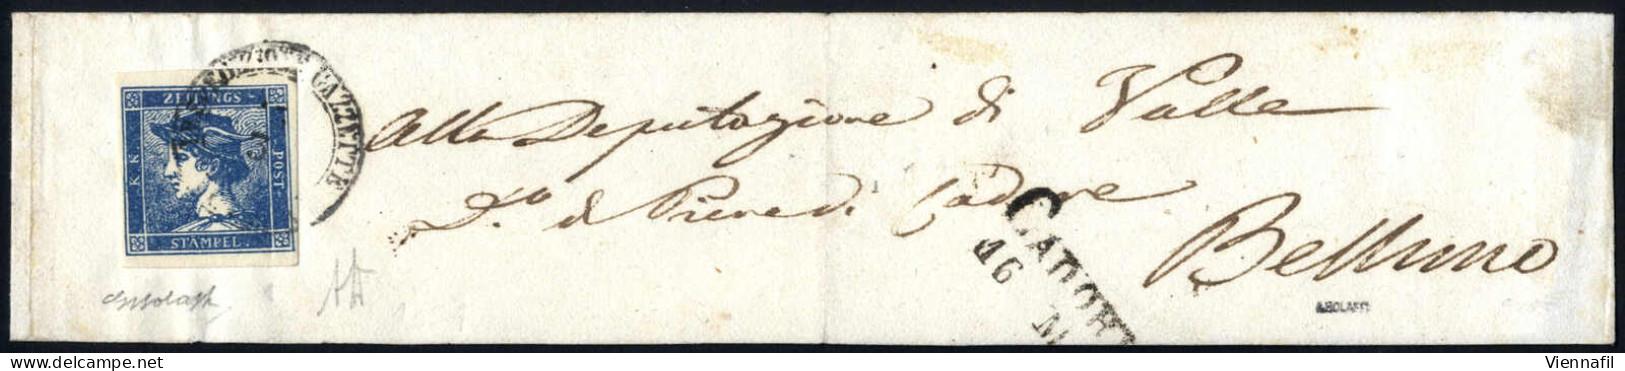 SPEDIZIONE GAZZETTE
ZEITUNGS
K. K.
POST
STÄMPEL.
Alla Deputazione di Valle
D.to di Pieve di Cadore
Belluno
CADORE
16 M
A.BOLAFFI
delcampe.net
Viennafil